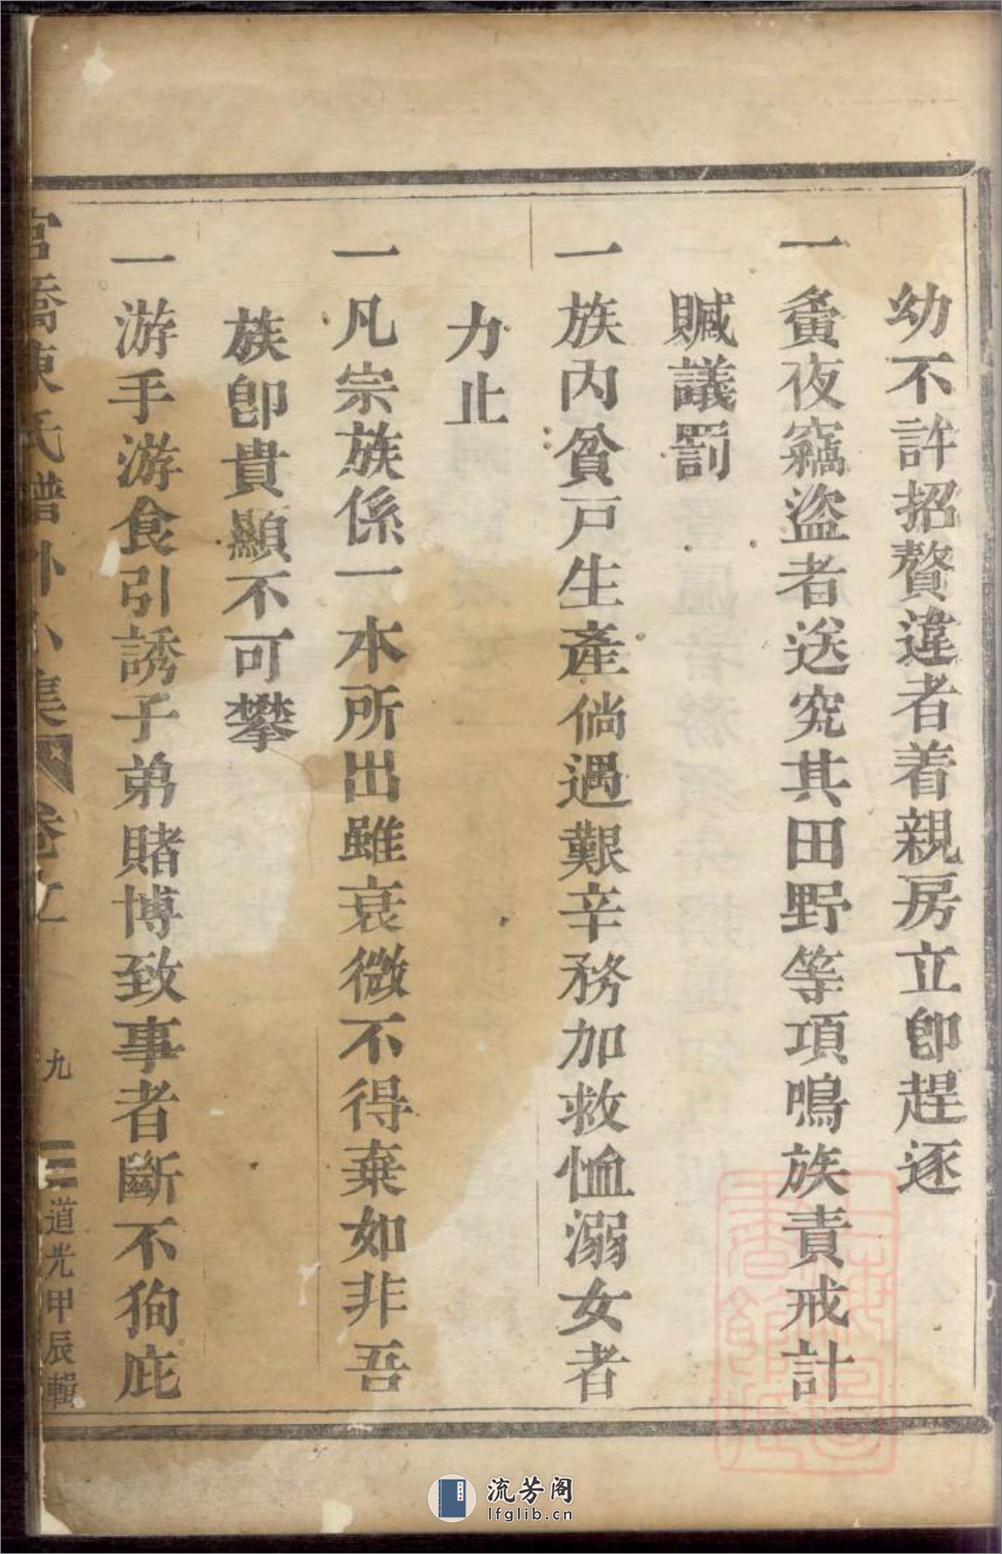 幼不許招贅違者着親房立卽趕逐
一夤夜竊盜者送究其田野等項鳴族責戒計
贓議罰
一族內貧戸生產倘遇艱辛務加救恤溺女者
力止
一凡宗族係一本所出雖衰微不得棄如非吾
族卽貴顯不可攀
一游手游食引誘子弟賭博致事者斷不狥庇
宫橋陳氏譜外小集 卷 九 道光甲辰輯
流芳阁
lfglib.cn